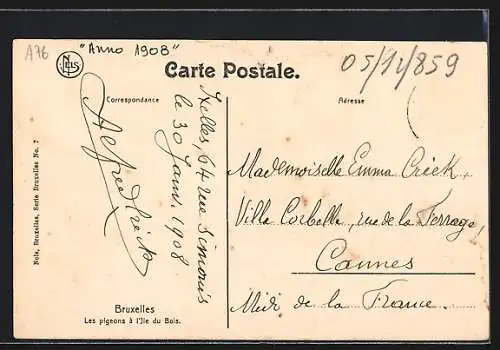 A76
"Anno 1908"
NELS
Carte Postale.
05/12/859
Correspondance
Adresse
Ixelles, 64 rue Simonis
le 30 Janv. 1908
Alfred Crick
Mademoiselle Emma Crick,
Villa Corbelle, rue de la Terrage,
Cannes
Midi de la France.
Nels, Bruxelles, Serie Bruxelles No. 7
Bruxelles
Les pigeons à l'Ile du Bois.